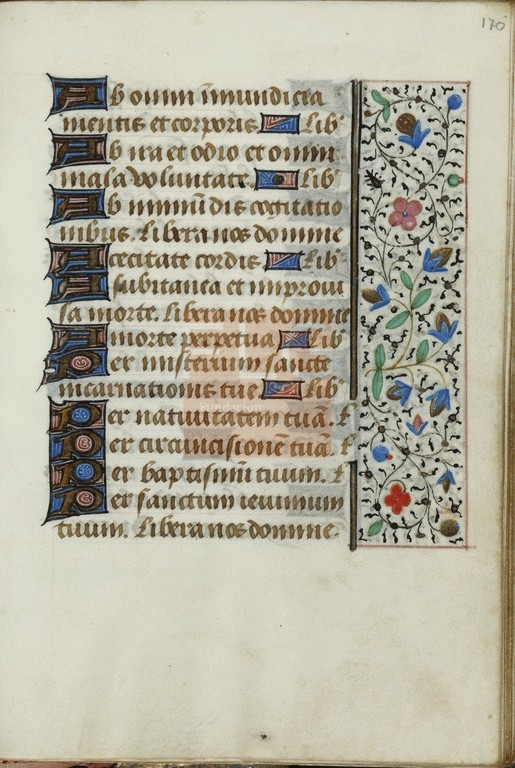 170
Ab omni inmundicia
mentis et corporis. Lib'
Ab ira et odio et omni
mala voluntate. Lib'
Ab inmūdis cogitatio
nibus. Libera nos domine
A cecitate cordis. Lib'
A subitanea et improui
sa morte. Libera nos domine
A morte perpetua Lib
Per misterium sancte
incarnationis tue Lib'
Per natiuitatem tuā. L
Per circuncisionē tuā. L
Per baptismū tuum. L
Per sanctum ieiunium
tuum. Libera nos domine.